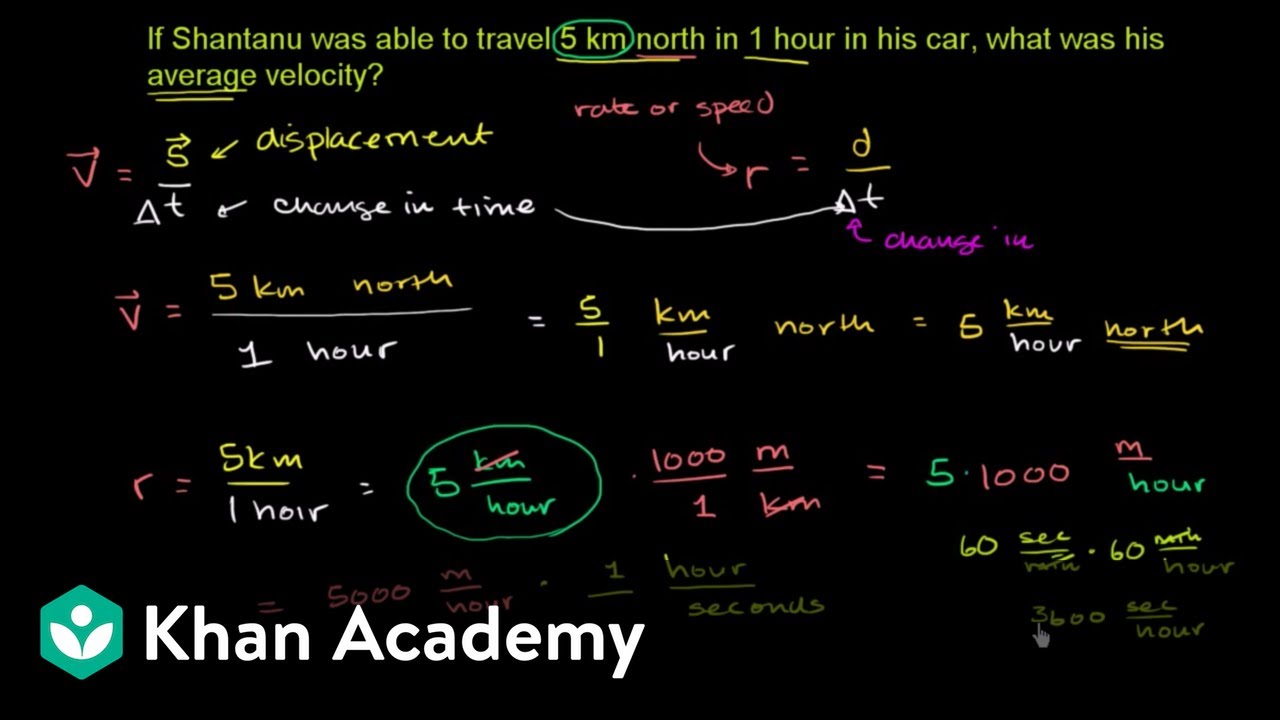 If Shantanu was able to travel 5 km north in 1 hour in his car, what was his
average velocity?
rate or speed
v⃗ = s⃗ / Δt
displacement
change in time
r = d / Δt
change in
v⃗ = 5 km north / 1 hour = 5/1 km/hour north = 5 km/hour north
r = 5km / 1 hoir = 5 km/hour · 1000/1 m/km = 5 · 1000 m/hour
60 sec/min · 60 min/hour
= 5000 m/hour · 1 hour / seconds
3600 sec/hour
Khan Academy